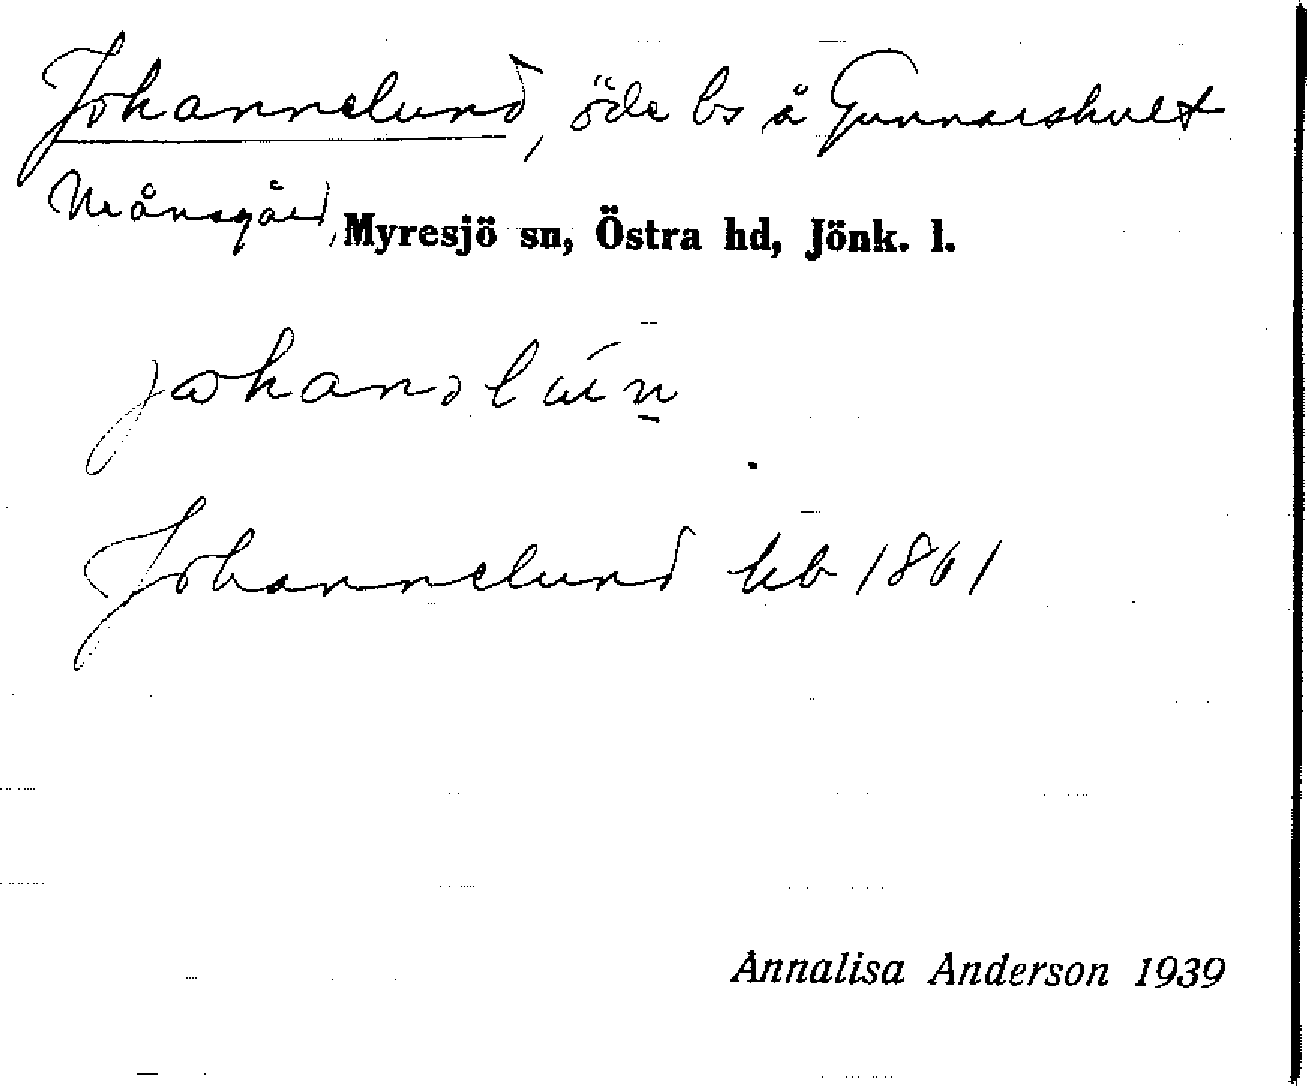 Johannelund, öde bs å Gunnarshult
Månsgård, Myresjö sn, Östra hd, Jönk. l.
Johannelund kb 1861
Annalisa Anderson 1939